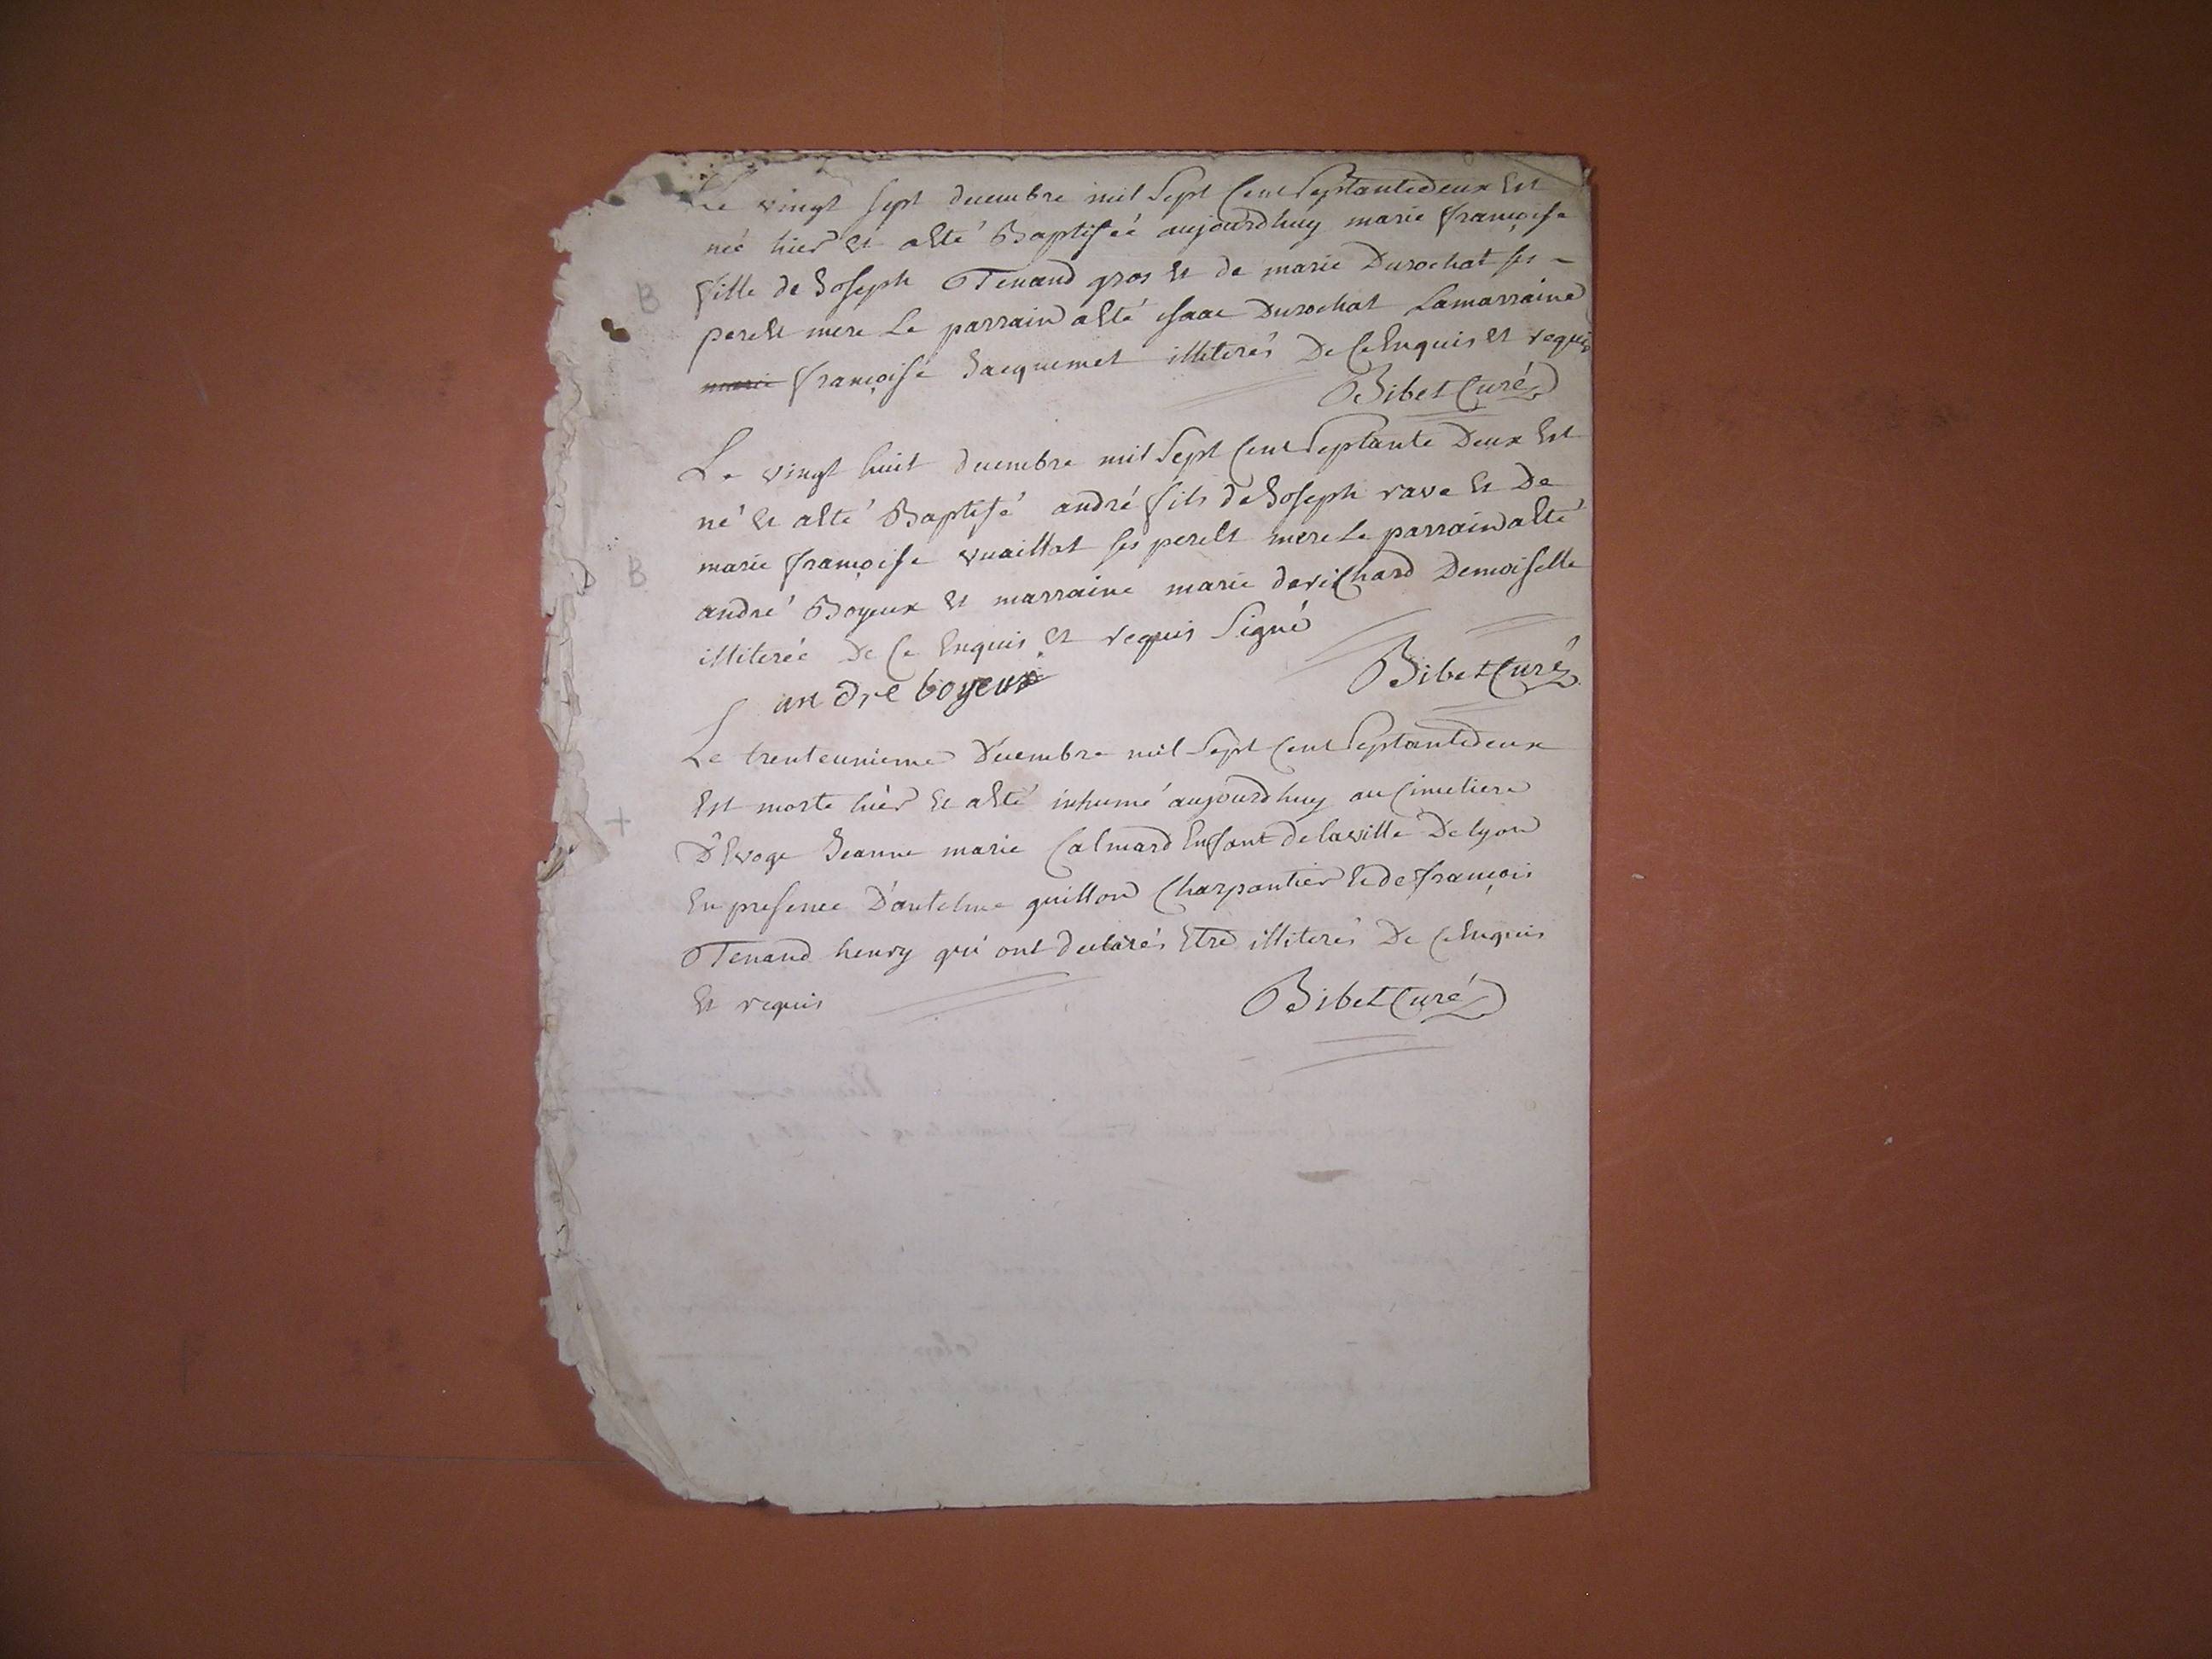 Le vingt sept decembre mil Sept Cent Septantedeux Est
née hier Et aEté Baptisée aujourdhuy marie françoise
fille de Joseph Tenand gros Et de marie Durochat ses -
pereEt mere Le parrain aEté isaac Durochat Lamarraine
B
marie françoise Jacquemet illiterés De CeEnquis Et requis
Bibet Curé
Le vingt huit decembre mil Sept Cent Septante Deux Est
né Et aEté Baptisé andré fils de Joseph rave Et De
marie françoise vuaillat ses pereEt mere Le parrain aEté
B
andré Boyeux Et marraine marie Demoiselle
illiterée De Ce Enquis Et requis Signé
an dre boyeux
Bibet Curé
Le trenteunieme Decembre mil Sept Cent Septantedeux
Est morte hier Et aEté inhumé aujourdhuy au Cimetiere
+
D'Evoge Jeanne marie Calmard Enfant delaville De lyon
En presence D'antelme guillon Charpantier Et de françois
Tenand henry qui ont declarés Etre illiterés De CeEnquis
Et requis
Bibet Curé